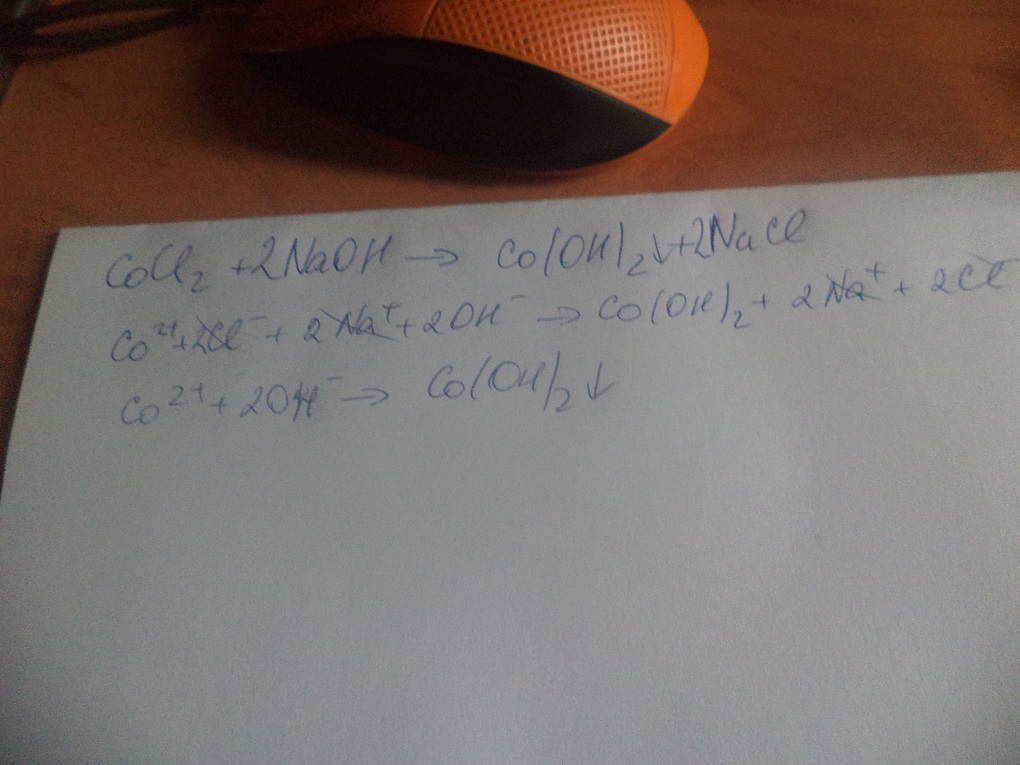 CoCl₂ + 2NaOH → Co(OH)₂↓ + 2NaCl
Co²⁺ + 2Cl⁻ + 2Na⁺ + 2OH⁻ → Co(OH)₂ + 2Na⁺ + 2Cl⁻
Co²⁺ + 2OH⁻ → Co(OH)₂↓